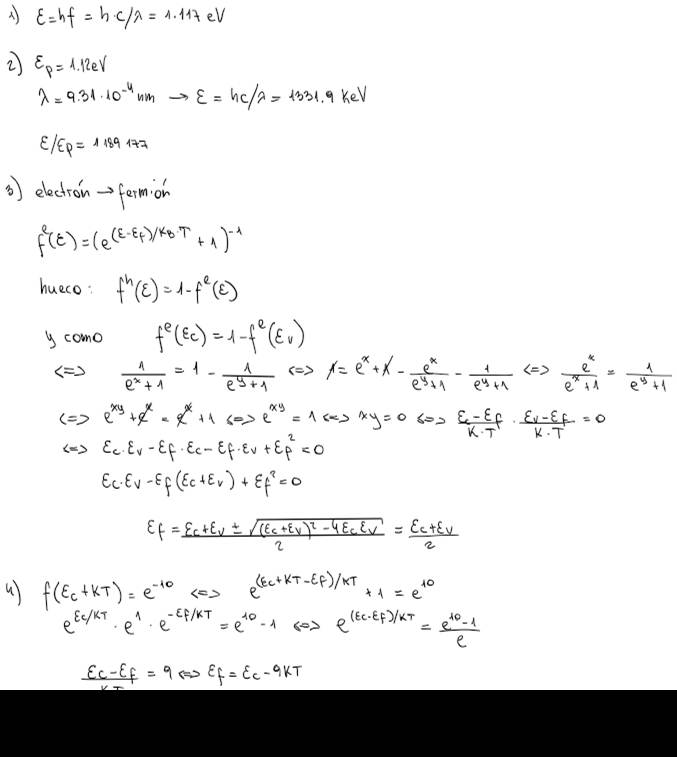 1) Ɛ=hf = h·c/λ = 1.117 eV
2) Ɛp = 1.12eV
λ = 9.31·10⁻⁴ nm → Ɛ = hc/λ = 1331.9 KeV
Ɛ/Ɛp = 1 189 177
3) electrón → fermión
fᵉ(Ɛ) = (e^((Ɛ-Ɛf)/KB·T) + 1)⁻¹
hueco: fʰ(Ɛ) = 1-fᵉ(Ɛ)
y como fᵉ(Ɛc) = 1-fᵉ(Ɛv)
<=> 1/(eˣ+1) = 1 - 1/(eʸ+1) <=> 1 = eˣ + 1 - eˣ/(eʸ+1) - 1/(eʸ+1) <=> eˣ/(eˣ+1) = 1/(eʸ+1)
<=> eˣʸ + eˣ = eˣ + 1 <=> eˣʸ = 1 <=> xy = 0 <=> (Ɛc-Ɛf)/(K·T) · (Ɛv-Ɛf)/(K·T) = 0
<=> Ɛc·Ɛv - Ɛf·Ɛc - Ɛf·Ɛv + Ɛf² = 0
Ɛc·Ɛv - Ɛf(Ɛc+Ɛv) + Ɛf² = 0
Ɛf = (Ɛc+Ɛv ± √((Ɛc+Ɛv)² - 4ƐcƐv))/2 = (Ɛc+Ɛv)/2
4) f(Ɛc+KT) = e⁻¹⁰ <=> e^((Ɛc+KT-Ɛf)/KT) + 1 = e¹⁰
e^(Ɛc/KT) · e¹ · e^(-Ɛf/KT) = e¹⁰ - 1 <=> e^((Ɛc-Ɛf)/KT) = (e¹⁰-1)/e
(Ɛc-Ɛf)/KT = 9 <=> Ɛf = Ɛc - 9KT